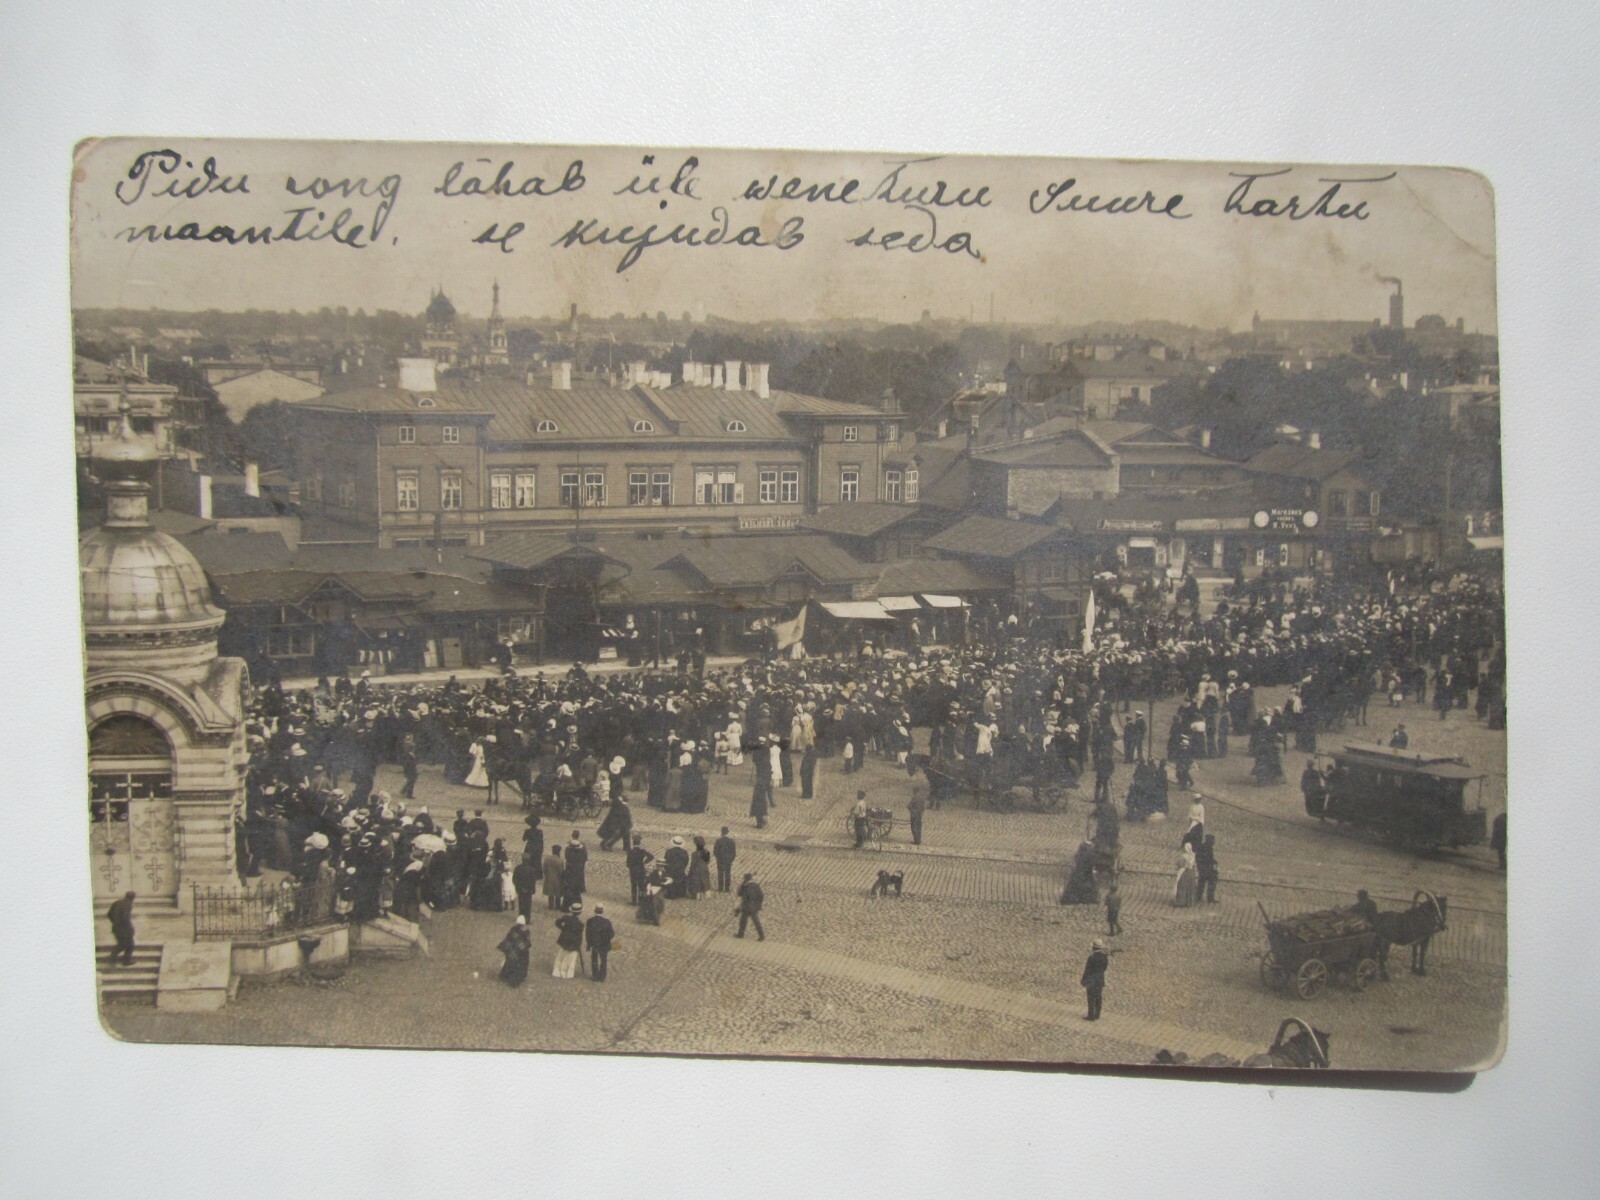 Pidu rong lähab üle wene turu Suure tartu
maantile. se kujudab seda
Магазинъ